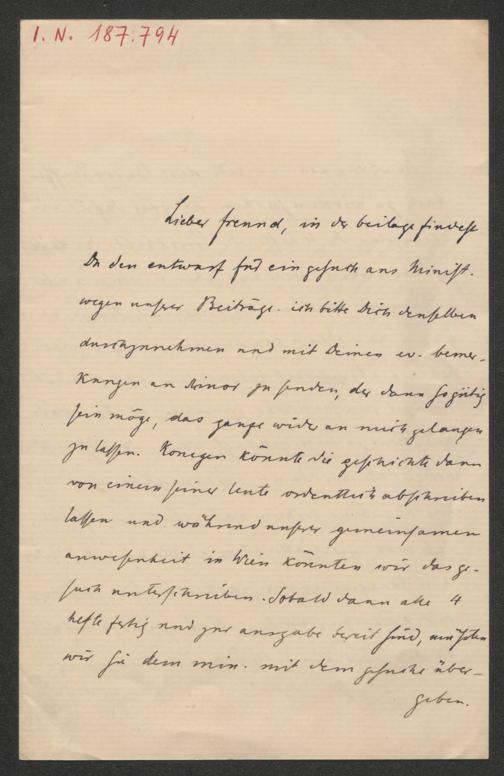 I. N. 187.794
Lieber freund, in der beilage findest
Du den entwurf für ein gesuch ans Minist.
wegen unsrer Beiträge. ich bitte Dich denselben
durchzunehmen und mit Deinen ev. bemer-
kungen an Minor zu senden, der dann so gütig
sein möge, das ganze wider an mich gelangen
zu lassen. Konegen könnte die geschichte dann
von einem seiner leute ordentlich abschreiben
lassen und während unsrer gemeinsamen
anwesenheit in Wien könnten wir das ge-
such unterschreiben. Sobald dann alle 4
hefte fertig und zur ausgabe bereit sind, müssten
wir sie dem min. mit dem gesuche über-
geben.